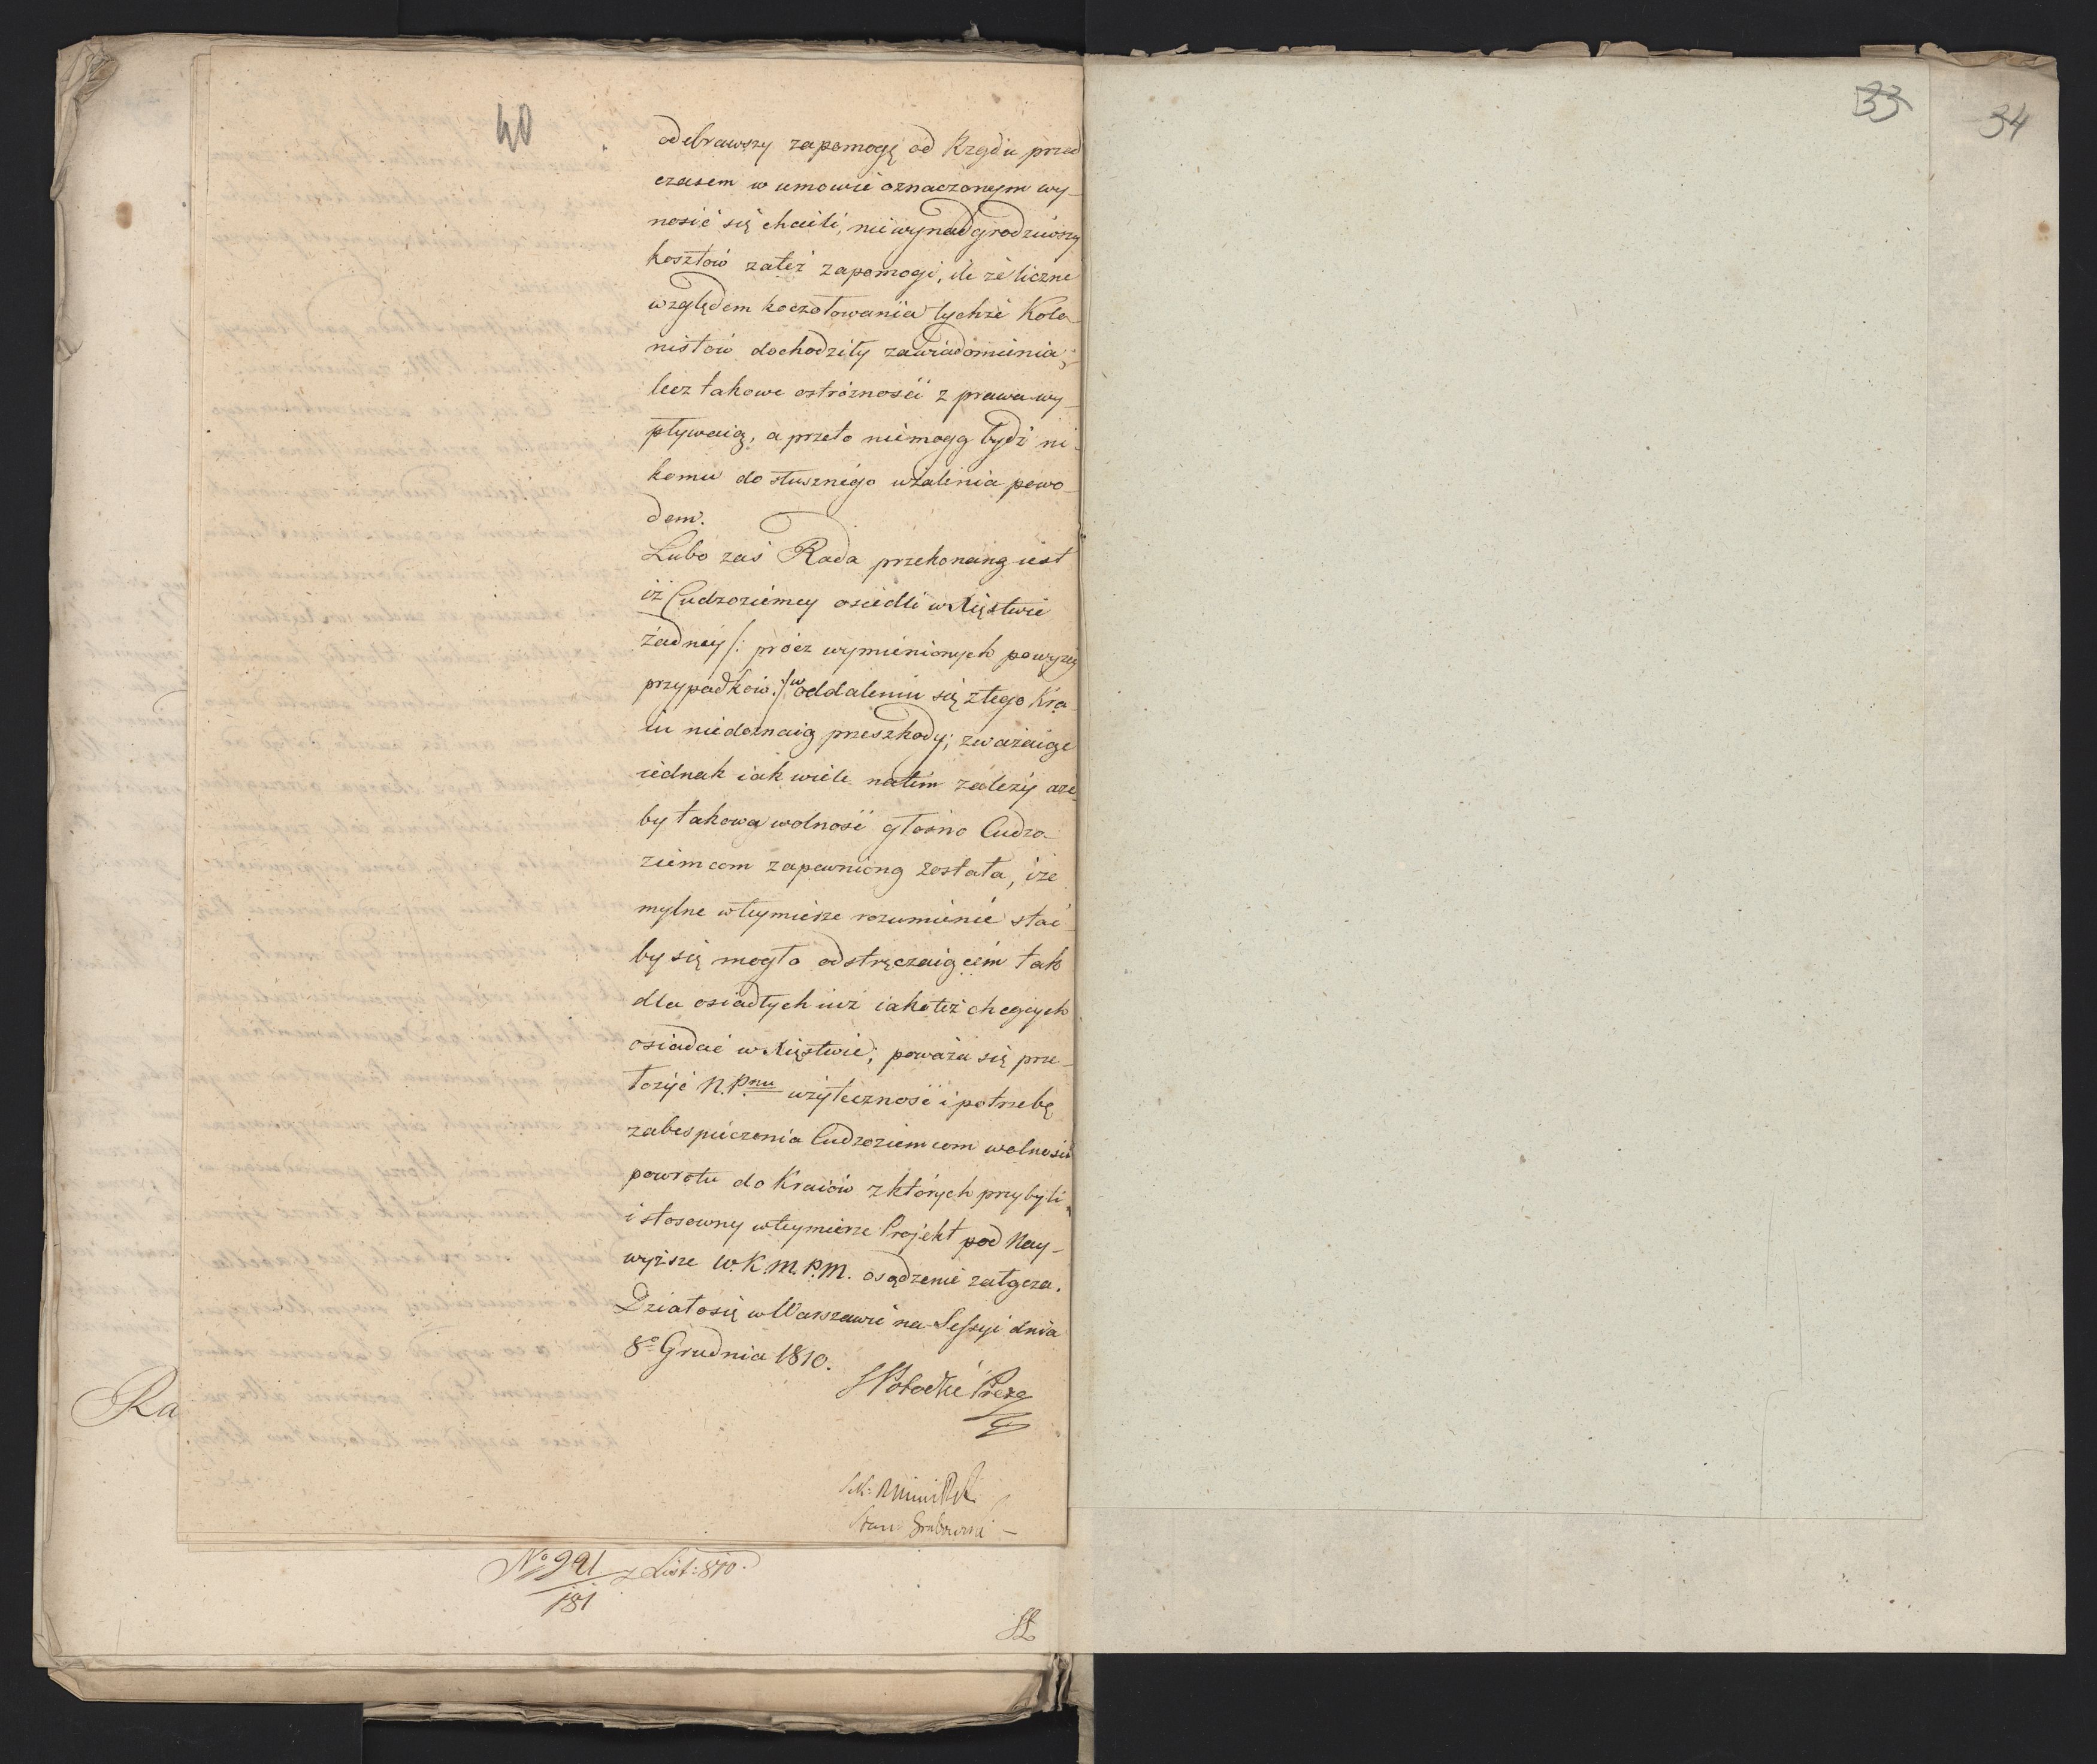 40
33
34
odebrawszy zapomogę od Rządu przed
czasem w umowie oznaczonym wy-
nosić się chcieli, niewynadgrodziwszy
kosztów zateż zapomogi, ile że liczne
względem koczołowania tychże Kolo-
nistów dochodziły zawiadomienia;
lecz takowe ostrożności z prawa wy-
pływaią, a przeto niemogą bydź ni-
komu do słusznego użalenia powo-
dem.
Lubo zaś Rada przekonaną iest
iż Cudzoziemcy osiedli w Xięstwie
żadney /: prócz wymienionych powyżey
przypadków :/ w oddaleniu się z tego Kra-
iu niedoznaią przeszkody; zważaiąc
iednak iak wiele natem zależy aże-
by takowa wolność głośno Cudzo-
ziemcom zapewnioną została, i że
mylne w teymierze rozumienie stać
by się mogło odstręczaiącem tak
dla osiadłych iuż iako też chcących
osiadać w Xięstwie; poważa się prze-
łożyć N. Pnu użyteczność i potrzebę
zabespieczenia Cudzoziemcom wolności
powrotu do Kraiów z których przybyli
i stosowny w teymierze Projekt pod Nay-
wyższe W. K. M. P. M. osądzenie załącza.
Działo się w Warszawie na Sessyi dnia
8o Grudnia 1810.
S Potocki Prezs
Stan Grabowski
Ra
No 991/181 z List: 810.